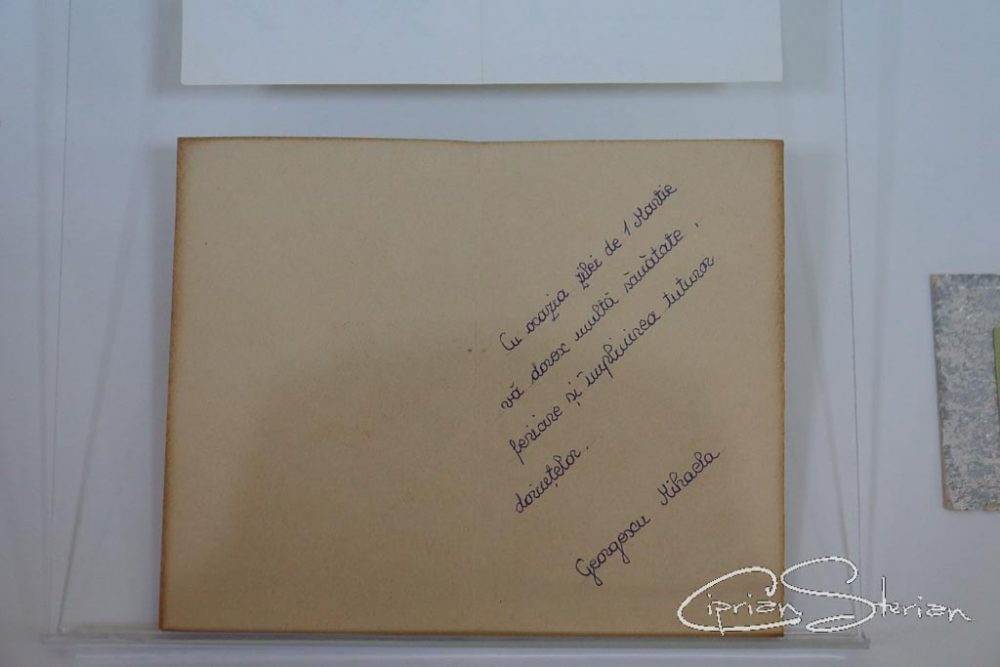 Cu ocazia zilei de 1 Martie
vă doresc multă sănătate,
fericire și împlinirea tuturor
dorințelor.
Georgescu Mihaela
Ciprian Sterian